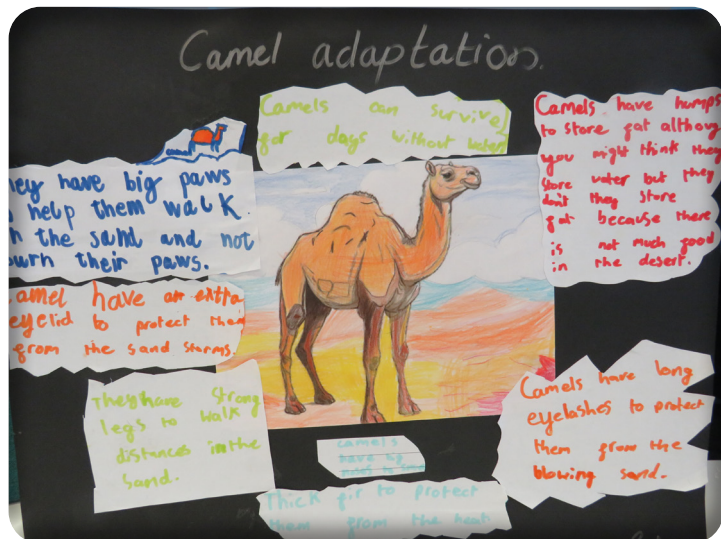 Camel adaptation.
Camels can survive
for days without water
Camels have humps
to store fat althoug
you might think they
store water but they
don't they store
fat because there
is not much food
in the desert.
hey have big paws
help them walk
the sand and not
burn their paws.
Camel have an extra
eyelid to protect them
from the sand storms.
They have strong
legs to walk
distances in the
sand.
Camels have long
eyelashes to protect
them from the
blowing sand.
camels
have big
noses to
Thick fir to protect
them from the heat